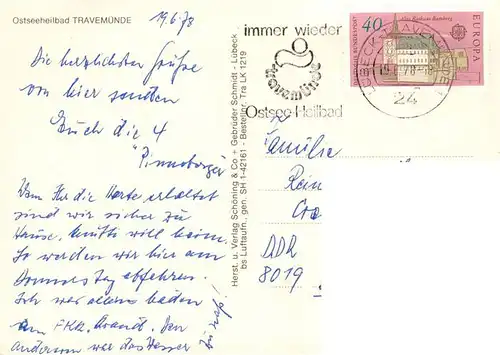 Ostseeheilbad TRAVEMÜNDE
19.6.78
Die herzlichsten Grüße
von hier senden
Euch die 4
Pinneberger
Wenn Ihr die Karte erhaltet
sind wir sicher zu
Hause, will heim.
So werden wir hier am
Donnerstag abfahren.
Ich war allein baden
am FKK. Strand. Den
anderen war das Wasser
zu naß!
Herst. u. Verlag Schöning & Co + Gebrüder Schmidt - Lübeck
bs Luftaufn., gen. SH 1-42161 - Bestellnr. Tra LK 1219
immer wieder
Travemünde
Ostsee-Heilbad
40
Altes Rathaus Bamberg
DEUTSCHE BUNDESPOST
EUROPA
24
Familie
Rein
DDR
8019